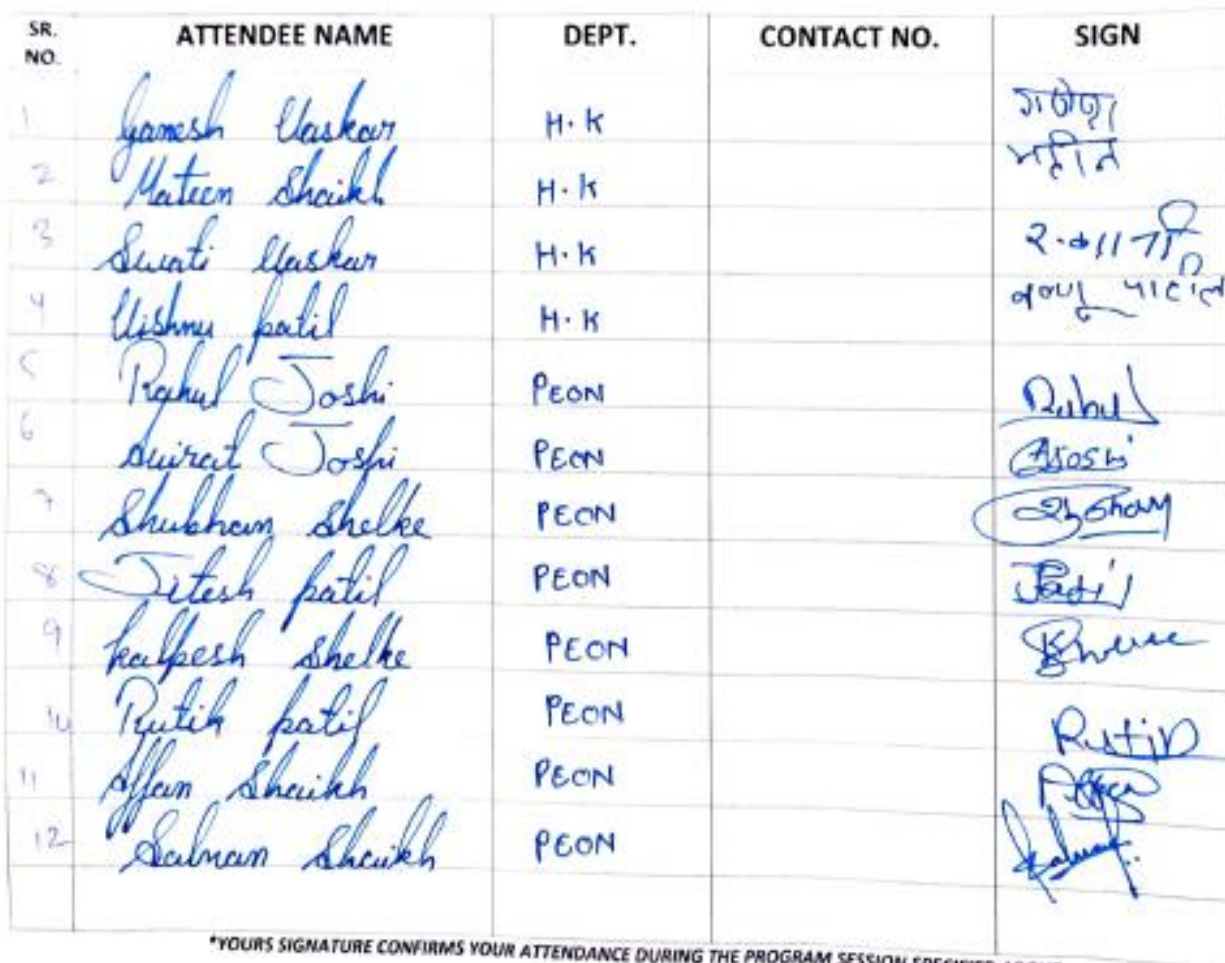 SR. NO. ATTENDEE NAME DEPT. CONTACT NO. SIGN
1 Ganesh Vaskar H.K गणेश
2 Mateen Shaikh H.K
3 Swati Vaskar H.K
4 Vishnu patil H.K पाटील
5 Rahul Joshi PEON Rahul
6 Joshi PEON Joshi
7 Shubham Shelke PEON
8 Jitesh patil PEON
9 kalpesh Shelke PEON
10 Rutik patil PEON
11 Affan Shaikh PEON
12 Salman Shaikh PEON
*YOURS SIGNATURE CONFIRMS YOUR ATTENDANCE DURING THE PROGRAM SESSION SPECIFIED